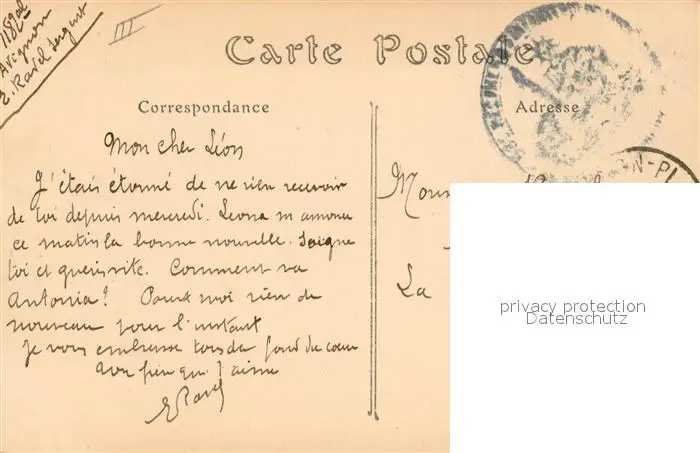 118e al
Avignon
E. Ravel Sergent
III
Carte Postale
Correspondance
Adresse
Mon cher Léon
J'étais étonné de ne rien recevoir
de toi depuis mercredi. Leona m'amena
ce matin la bonne nouvelle. Soigne
toi et guéris vite. Comment va
Antonia? Pour moi rien de
nouveau pour l'instant
Je vous embrasse tous du fond du cœur
Ton qui t'aime
E Ravel
La
privacy protection
Datenschutz